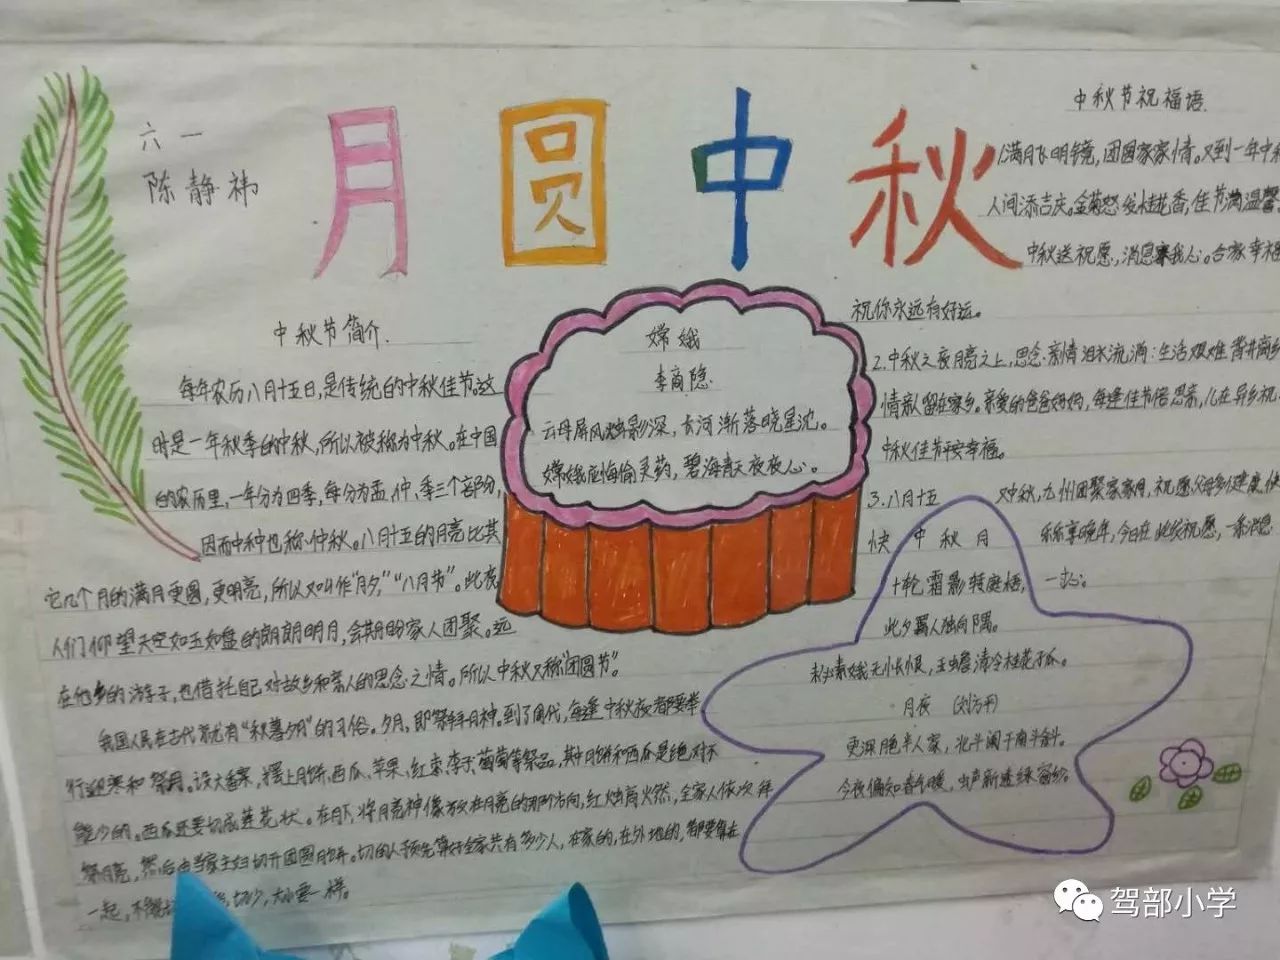 六一
陈静祎
月圆中秋
中秋节祝福语
1.满月飞明镜,团圆家家情。又到一年中秋
人间添吉庆。金菊怒发桂花香,佳节满温馨
中秋送祝愿,消息寄我心。合家幸福
祝你永远有好运。
2.中秋之夜月亮之上,思念亲情泪水流淌:生活艰难背井离乡
情亲人留在家乡。亲爱的爸爸妈妈,每逢佳节倍思亲,儿在异乡祝
中秋佳节平安幸福。
3.八月十五 对中秋,九州团聚家家月,祝愿父母多健康,快
乐乐享晚年,今日在此发祝愿,一条消息
一心。
中秋节简介.
每年农历八月十五日,是传统的中秋佳节。这
时是一年秋季的中秋,所以被称为中秋。在中国
的农历里,一年分为四季,每分为孟、仲、季三个部分,
因而中秋也称仲秋。八月十五的月亮比其
它几个月的满月更圆,更明亮,所以又叫作“月夕”,“八月节”。此夜
人们仰望天空如玉如盘的朗朗明月,会期盼家人团聚。远
在他乡的游子,也借托自己对故乡和亲人的思念之情。所以中秋又称“团圆节”。
我国人民在古代就有“秋暮夕月”的习俗。夕月,即祭拜月神。到了周代,每逢中秋夜都要举
行迎寒和祭月。设大香案,摆上月饼、西瓜、苹果、红枣、李子、葡萄等祭品,其中月饼和西瓜是绝对不
能少的。西瓜还要切成莲花状。在月下,将月亮神像放在月亮的那个方向,红烛高火然,全家人依次拜
祭月亮,然后由当家主妇切开团圆月饼。切的人预先算好全家共有多少人,在家的,在外地的,都要算在
一起,不能 切少,大小要一样。
嫦娥
李商隐
云母屏风烛影深,长河渐落晓星沈。
嫦娥应悔偷灵药,碧海青天夜夜心。
快 中秋月
十轮霜影转庭梧,
此夕羁人独向隅。
未必素娥无怅恨,玉蟾清冷桂花孤。
月夜 (刘方平)
更深月色半人家,北斗阑干南斗斜。
今夜偏知春气暖,虫声新透绿窗纱。
驾部小学